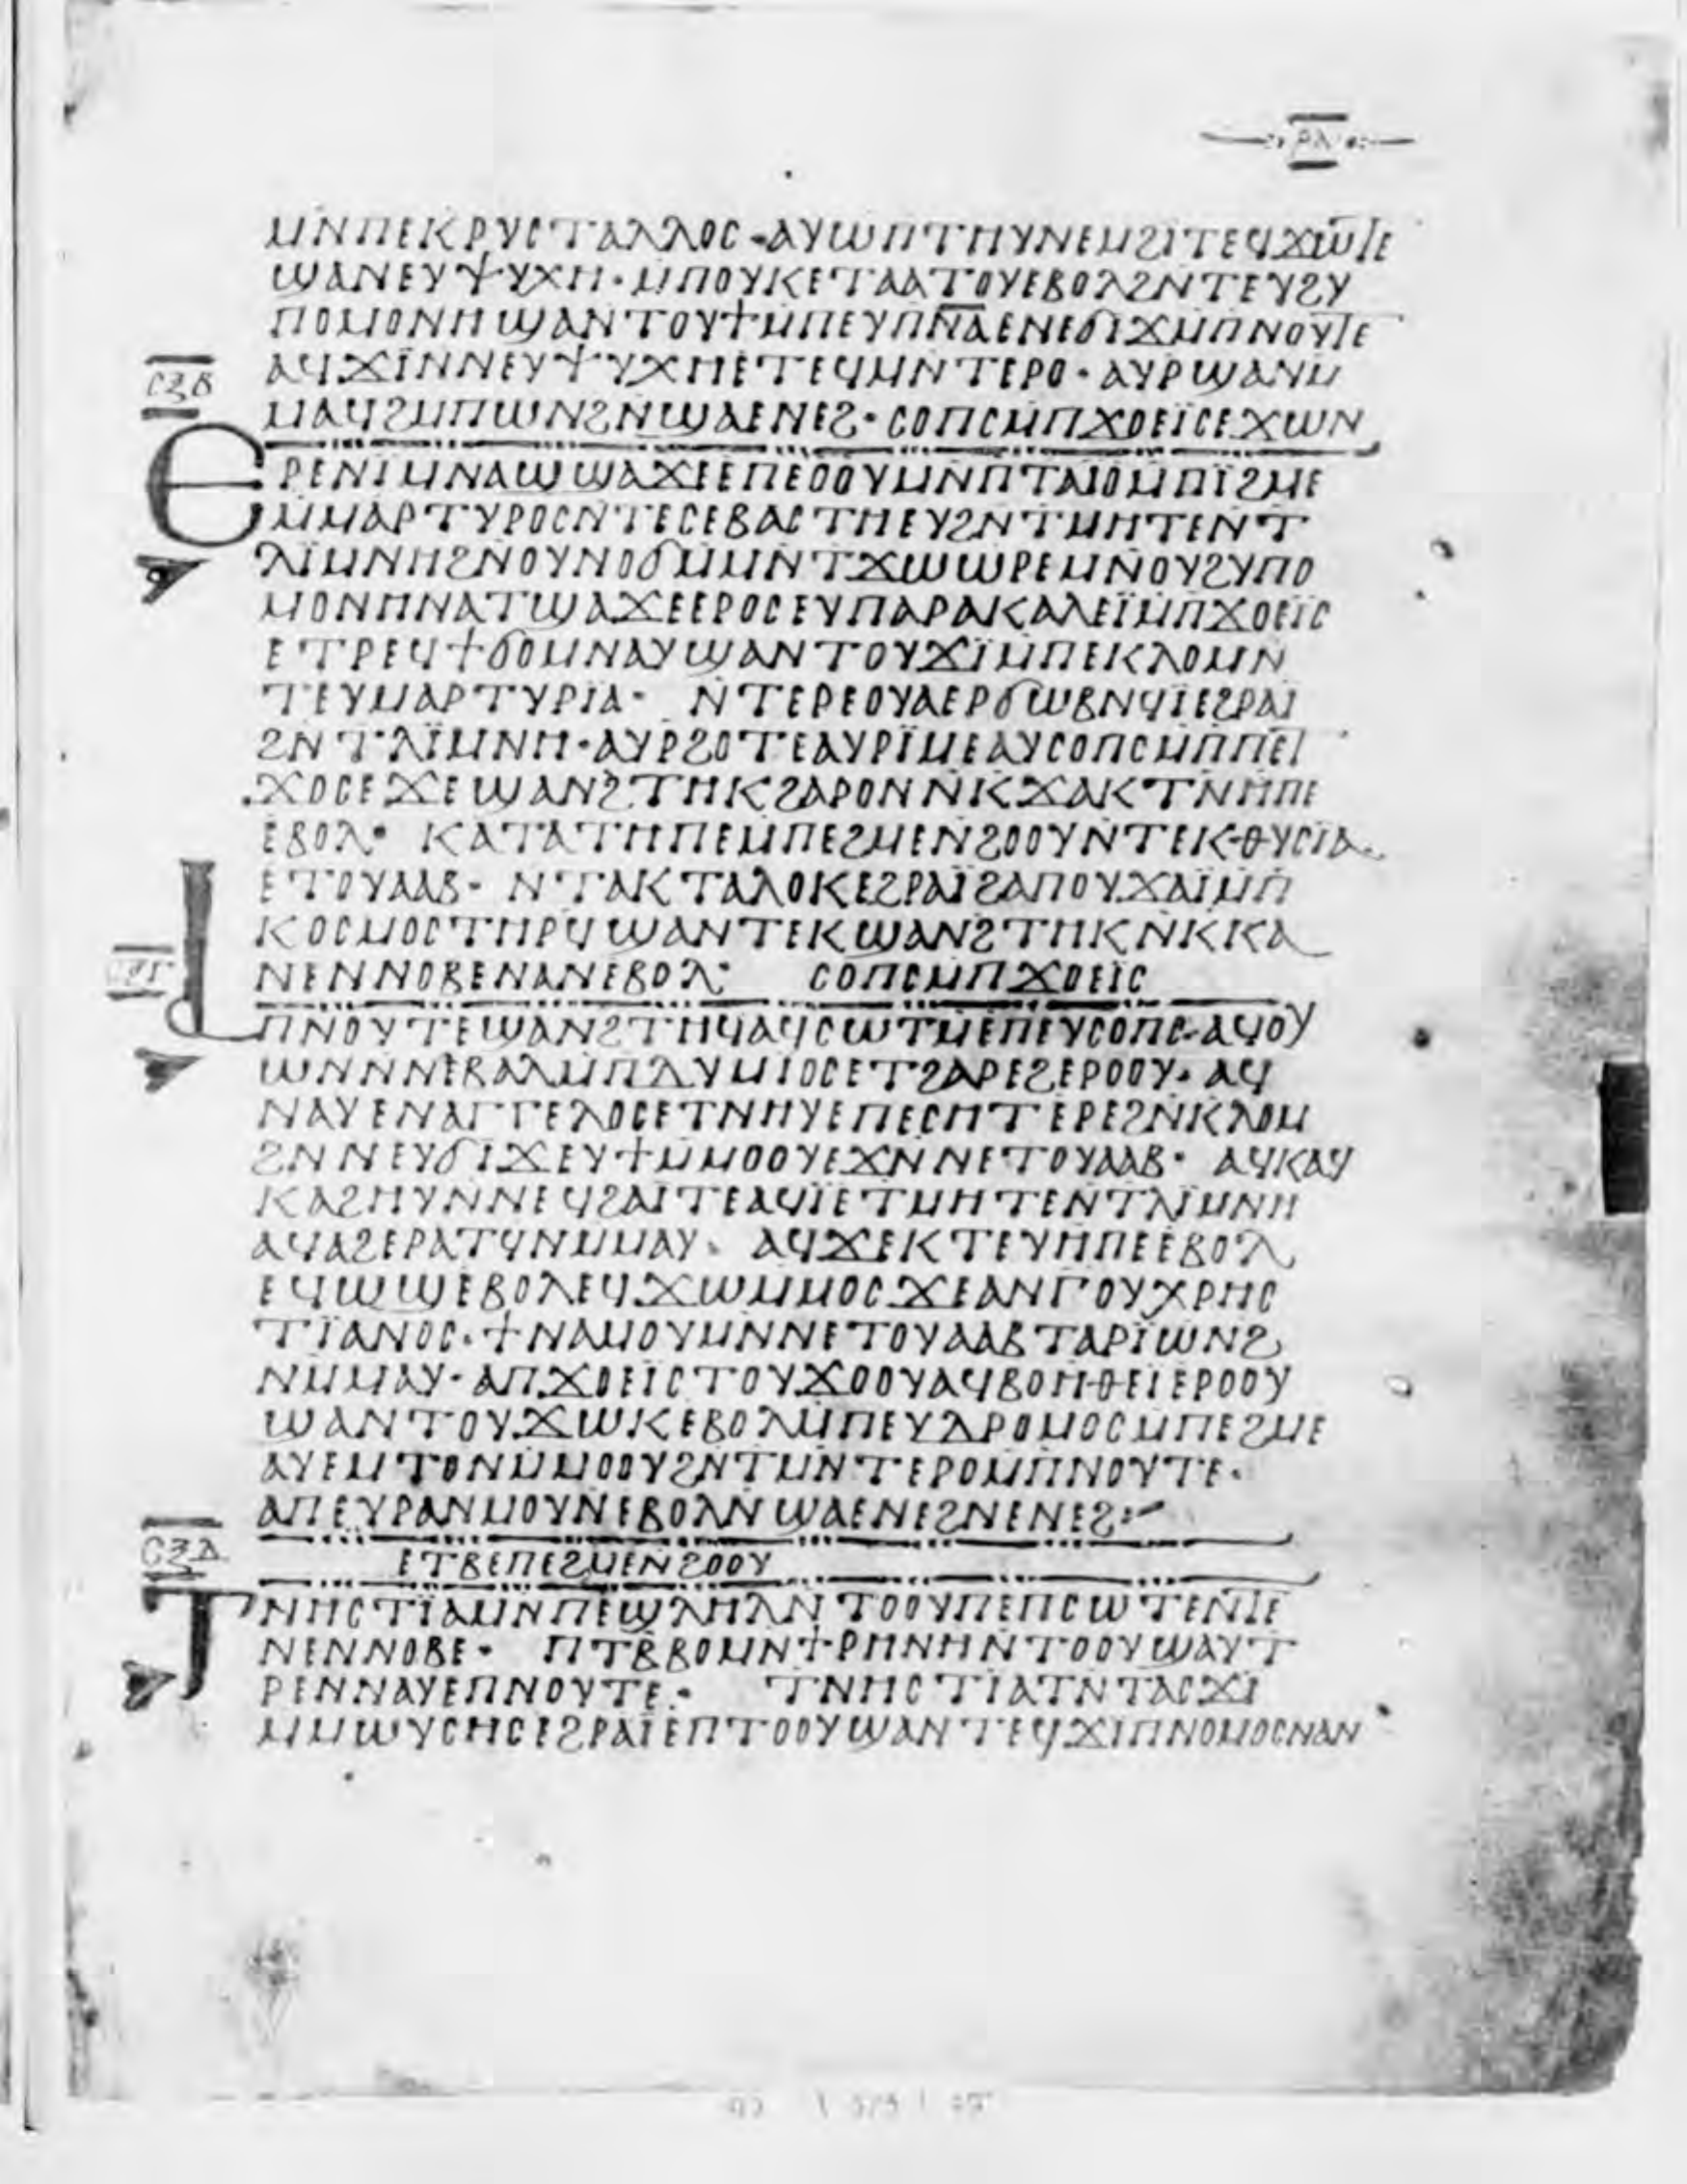 ⲣⲗ
ⲙⲛⲡⲉⲕⲣⲩⲥⲧⲁⲗⲗⲟⲥ·ⲁⲩⲱⲡⲧⲏⲩⲛⲉⲙϩⲓⲧⲉϥϫⲱ̅ⲧⲉ
ϣⲁⲛⲉⲩⲯⲩⲭⲏ·ⲙⲡⲟⲩⲕⲉⲧⲁⲁⲧⲟⲩⲉⲃⲟⲗϩⲛⲧⲉⲩϩⲩ
ⲡⲟⲙⲟⲛⲏϣⲁⲛⲧⲟⲩϯⲙⲡⲉⲩⲡ̅ⲛ̅ⲁ̅ⲉⲛⲉϭⲓϫⲙⲡⲛⲟⲩⲧⲉ
ⲥⲝⲃ
ⲁϥϫⲓⲛⲛⲉⲩⲯⲩⲭⲏⲉⲧⲉϥⲙⲛⲧⲉⲣⲟ·ⲁⲩⲣϣⲁⲛⲙ
ⲙⲁϥϩⲙⲡⲱⲛϩⲛ̅ϣⲁⲉⲛⲉϩ·ⲥⲟⲡⲥⲙⲡϫⲟⲉⲓⲥⲉϫⲱⲛ
ⲉⲣⲉⲛⲓⲙⲛⲁϣϣⲁϫⲉⲉⲡⲉⲟⲟⲩⲙⲛ̅ⲡⲧⲁⲓⲟⲙⲡⲓϩⲙⲉ
ⲙⲙⲁⲣⲧⲩⲣⲟⲥⲛⲧⲉⲥⲉⲃⲁⲥⲧⲏⲉⲩϩⲛⲧⲙⲏⲧⲉⲛⲧ
ⲗⲓⲙⲛⲏϩⲛⲟⲩⲛⲟϭⲙⲙⲛⲧϫⲱⲱⲣⲉⲙⲛ̅ⲟⲩϩⲩⲡⲟ
ⲙⲟⲛⲏⲛⲁⲧϣⲁϫⲉⲉⲣⲟⲥⲉⲩⲡⲁⲣⲁⲕⲁⲗⲉⲓⲙⲡϫⲟⲉⲓⲥ
ⲉⲧⲣⲉϥϯϭⲟⲙⲛⲁⲩϣⲁⲛⲧⲟⲩϫⲓⲙⲡⲉⲕⲗⲟⲙⲛ
ⲧⲉⲩⲙⲁⲣⲧⲩⲣⲓⲁ· ⲛⲧⲉⲣⲉⲟⲩⲁⲉⲣϭⲱⲃⲛϥⲓⲉϩⲣⲁⲓ
ϩⲛⲧⲗⲓⲙⲛⲏ·ⲁⲩⲣϩⲟⲧⲉⲁⲩⲣⲓⲙⲉⲁⲩⲥⲟⲡⲥⲙⲡⲡⲉⲓ
ϫⲟⲥⲉϫⲉϣⲁⲛϩⲧⲏⲕϩⲁⲣⲟⲛⲛⲕϫⲁⲕⲧⲛⲏⲡⲉ
ⲉⲃⲟⲗ· ⲕⲁⲧⲁⲧⲏⲡⲉⲙⲡⲉϩⲙⲉⲛϩⲟⲟⲩⲛⲧⲉⲕⲑⲩⲥⲓⲁ
ⲉⲧⲟⲩⲁⲁⲃ· ⲛⲧⲁⲕⲧⲁⲗⲟⲕⲉϩⲣⲁⲓϩⲁⲡⲟⲩϫⲁⲓⲙⲡ
ⲕⲟⲥⲙⲟⲥⲧⲏⲣϥϣⲁⲛⲧⲉⲕϣⲁⲛϩⲧⲏⲕⲛⲕⲕⲁ
ⲥⲝⲅ
ⲛⲉⲛⲛⲟⲃⲉⲛⲁⲛⲉⲃⲟⲗ: ⲥⲟⲡⲥⲙⲡϫⲟⲉⲓⲥ
ⲁⲡⲛⲟⲩⲧⲉϣⲁⲛϩⲧⲏϥⲁϥⲥⲱⲧⲙⲉⲡⲉⲩⲥⲟⲡⲥ·ⲁϥⲟⲩ
ⲱⲛⲛⲛⲉⲃⲁⲗⲙⲡⲇⲩⲙⲓⲟⲥⲉⲧϩⲁⲣⲉϩⲉⲣⲟⲟⲩ·ⲁϥ
ⲛⲁⲩⲉⲛⲁⲅⲅⲉⲗⲟⲥⲉⲧⲛⲏⲩⲉⲡⲉⲥⲏⲧⲉⲣⲉϩⲛⲕⲗⲟⲙ
ϩⲛⲛⲉⲩϭⲓϫⲉⲩϯⲙⲙⲟⲟⲩⲉϫⲛⲛⲉⲧⲟⲩⲁⲁⲃ· ⲁϥⲕⲁϥ
ⲕⲁϩⲏⲩⲛⲛⲉϥϩⲁⲓⲧⲉⲁϥⲓⲉⲧⲙⲏⲧⲉⲛⲧⲗⲓⲙⲛⲏ
ⲁϥⲁϩⲉⲣⲁⲧϥⲛⲙⲙⲁⲩ· ⲁϥϫⲉⲕⲧⲉⲩⲏⲡⲉⲉⲃⲟⲗ
ⲉϥⲱϣⲉⲃⲟⲗⲉϥϫⲱⲙⲙⲟⲥϫⲉⲁⲛⲅⲟⲩⲭⲣⲏⲥ
ⲧⲓⲁⲛⲟⲥ·ϯⲛⲁⲙⲟⲩⲙⲛⲛⲉⲧⲟⲩⲁⲁⲃⲧⲁⲣⲓⲱⲛϩ
ⲛⲙⲙⲁⲩ·ⲁⲡϫⲟⲉⲓⲥⲧⲟⲩϫⲟⲟⲩⲁϥⲃⲟⲏⲑⲉⲓⲉⲣⲟⲟⲩ
ϣⲁⲛⲧⲟⲩϫⲱⲕⲉⲃⲟⲗⲙⲡⲉⲩⲇⲣⲟⲙⲟⲥⲙⲡⲉϩⲙⲉ
ⲁⲩⲉⲙⲧⲟⲛⲙⲙⲟⲟⲩϩⲛⲧⲙⲛⲧⲉⲣⲟⲙⲡⲛⲟⲩⲧⲉ·
ⲁⲡⲉⲩⲣⲁⲛⲙⲟⲩⲛⲉⲃⲟⲗⲛϣⲁⲉⲛⲉϩⲛⲉⲛⲉϩ:
ⲥⲝⲇ
ⲉⲧⲃⲉⲡⲉϩⲙⲉⲛϩⲟⲟⲩ
ⲧⲛⲏⲥⲧⲓⲁⲙⲛⲡⲉϣⲗⲏⲗⲛⲧⲟⲟⲩⲡⲉⲡⲥⲱⲧⲉⲛⲧⲉ
ⲛⲉⲛⲛⲟⲃⲉ· ⲡⲧⲃⲃⲟⲙⲛϯⲣⲏⲛⲏⲛⲧⲟⲟⲩϣⲁⲩⲧ
ⲣⲉⲛⲛⲁⲩⲉⲡⲛⲟⲩⲧⲉ· ⲧⲛⲏⲥⲧⲓⲁⲧⲛⲧⲁⲥϫⲓ
ⲙⲙⲱⲩⲥⲏⲥⲉϩⲣⲁⲓⲉⲡⲧⲟⲟⲩϣⲁⲛⲧⲉϥϫⲓⲡⲛⲟⲙⲟⲥⲛⲁⲛ